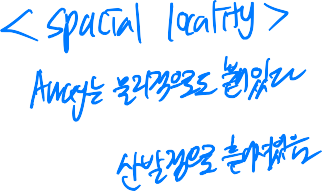 < spacial locality >
Array는 물리적으로도 붙어있다
산발적으로 흩어져있음